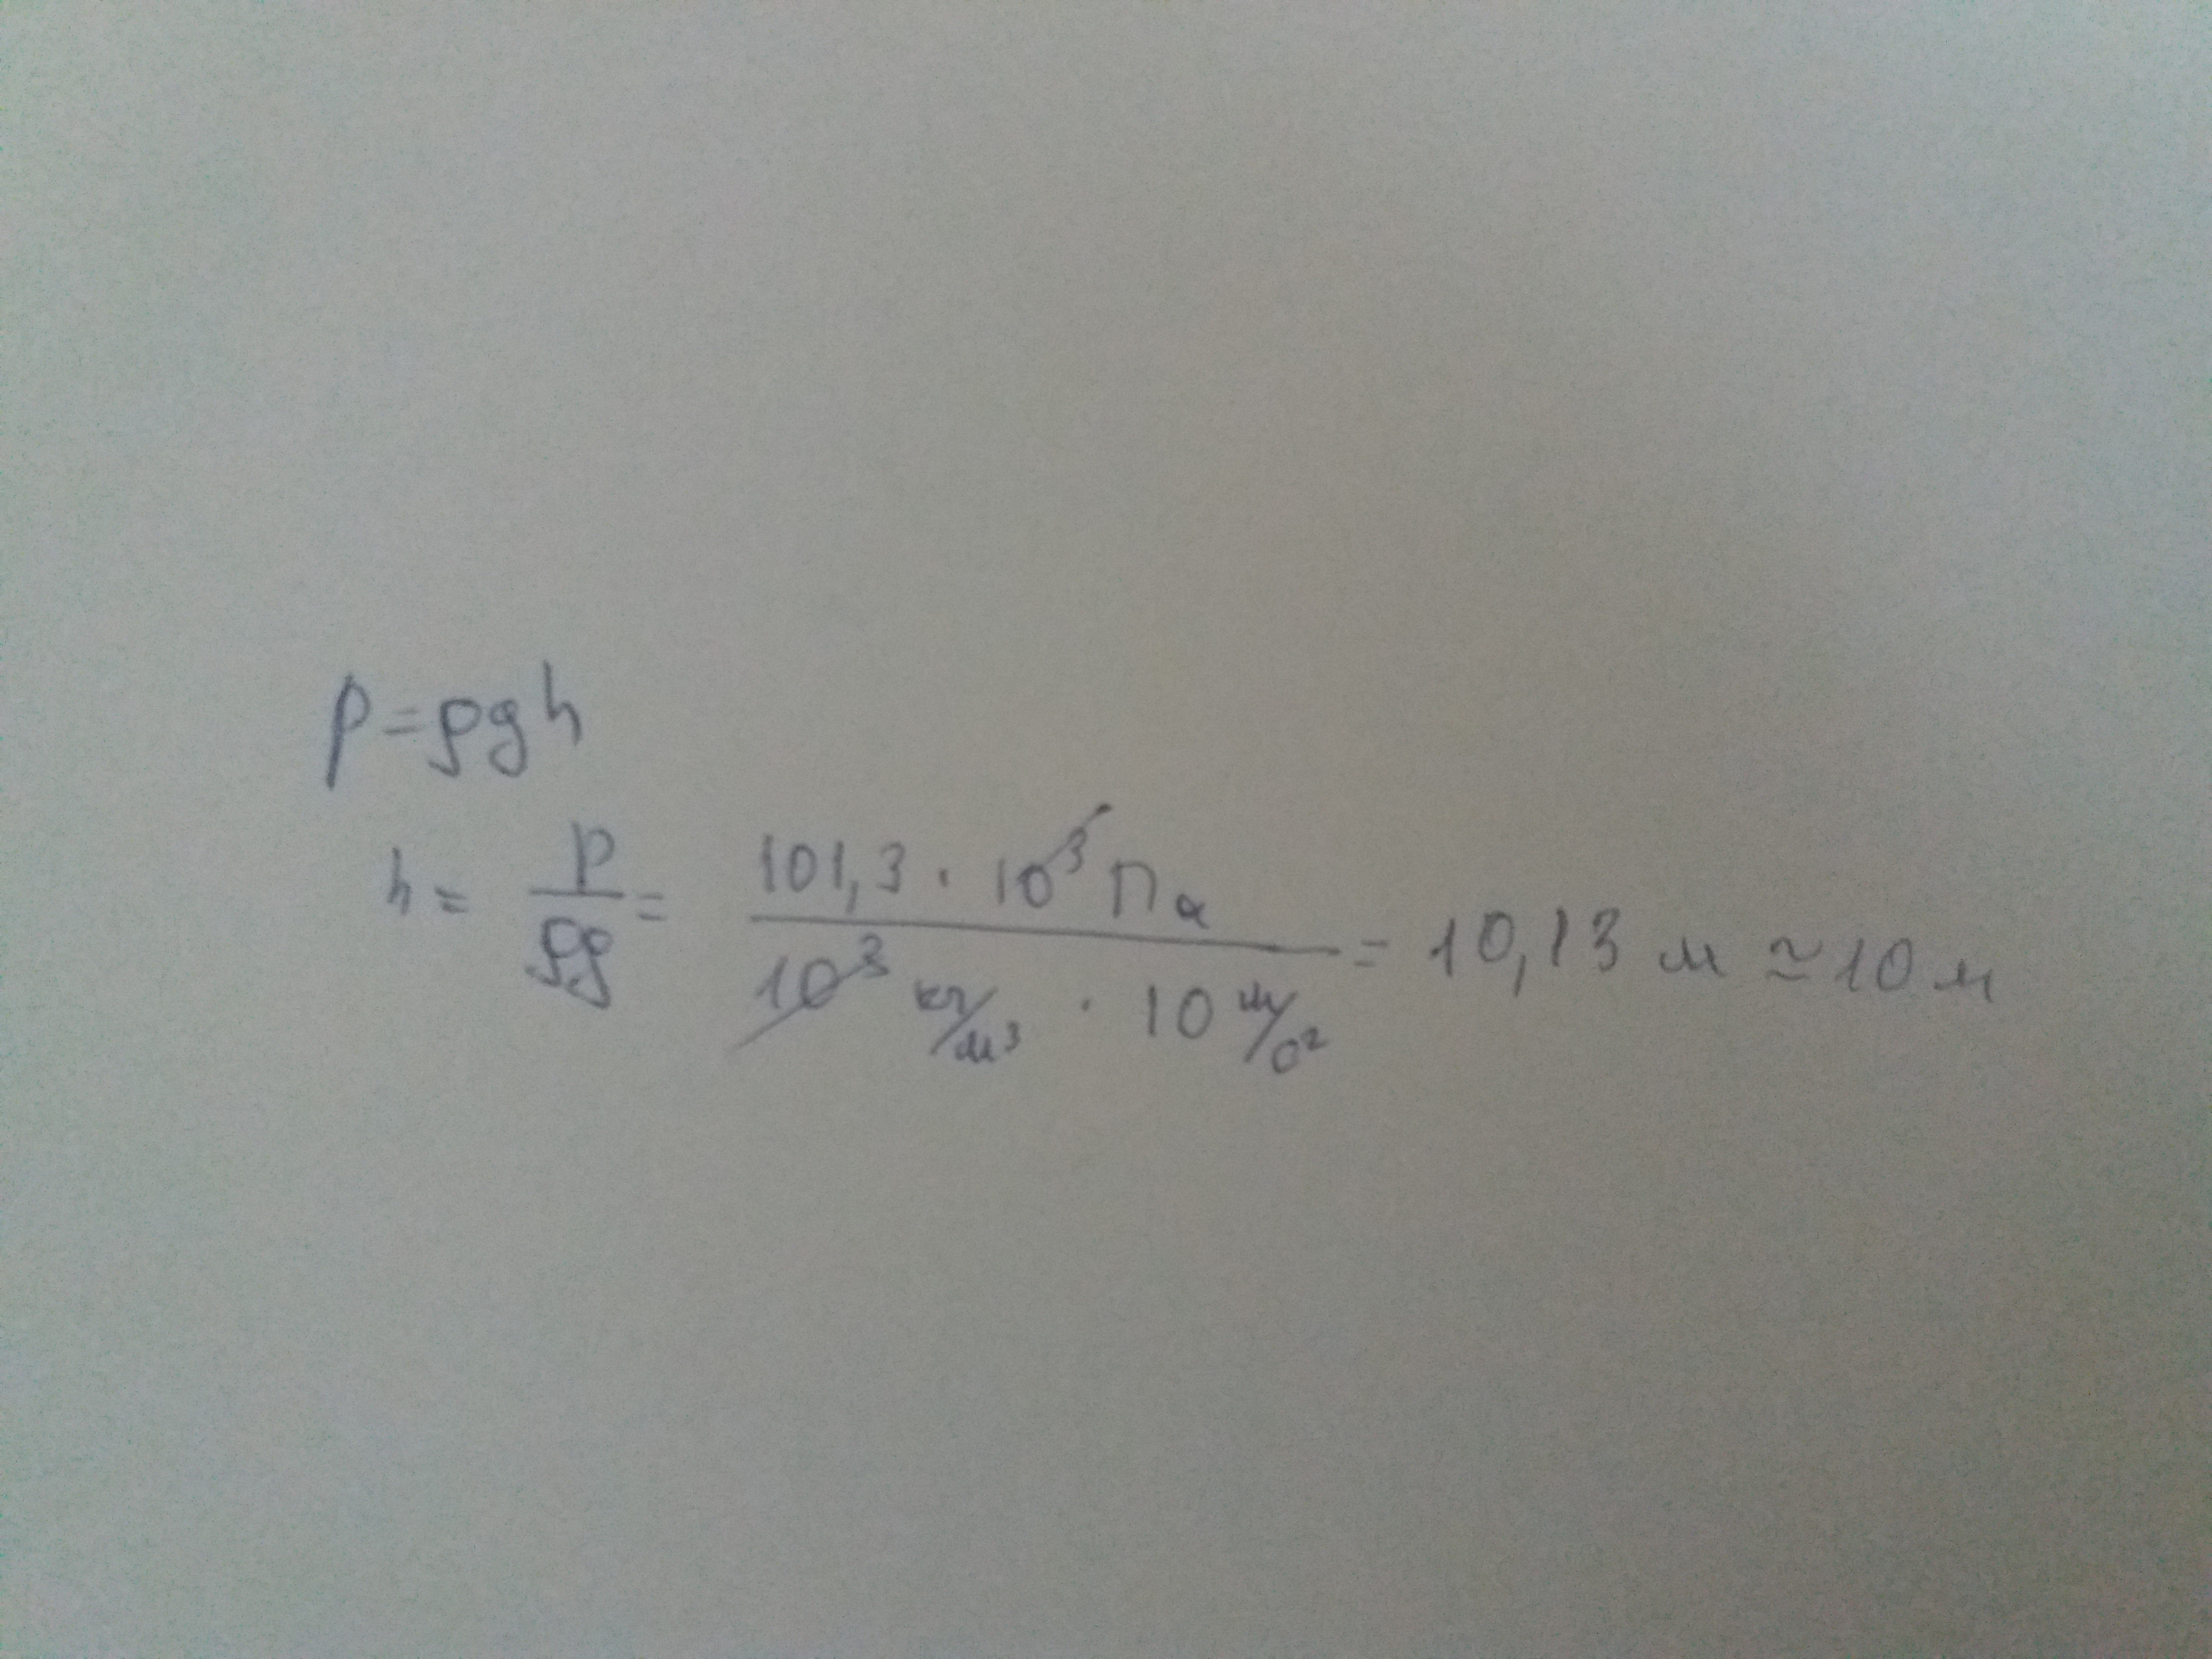 p=ρgh
h = p/ρg = 101,3 · 10³ Па / 10³ кг/м³ · 10 м/с² = 10,13 м ≃ 10 м